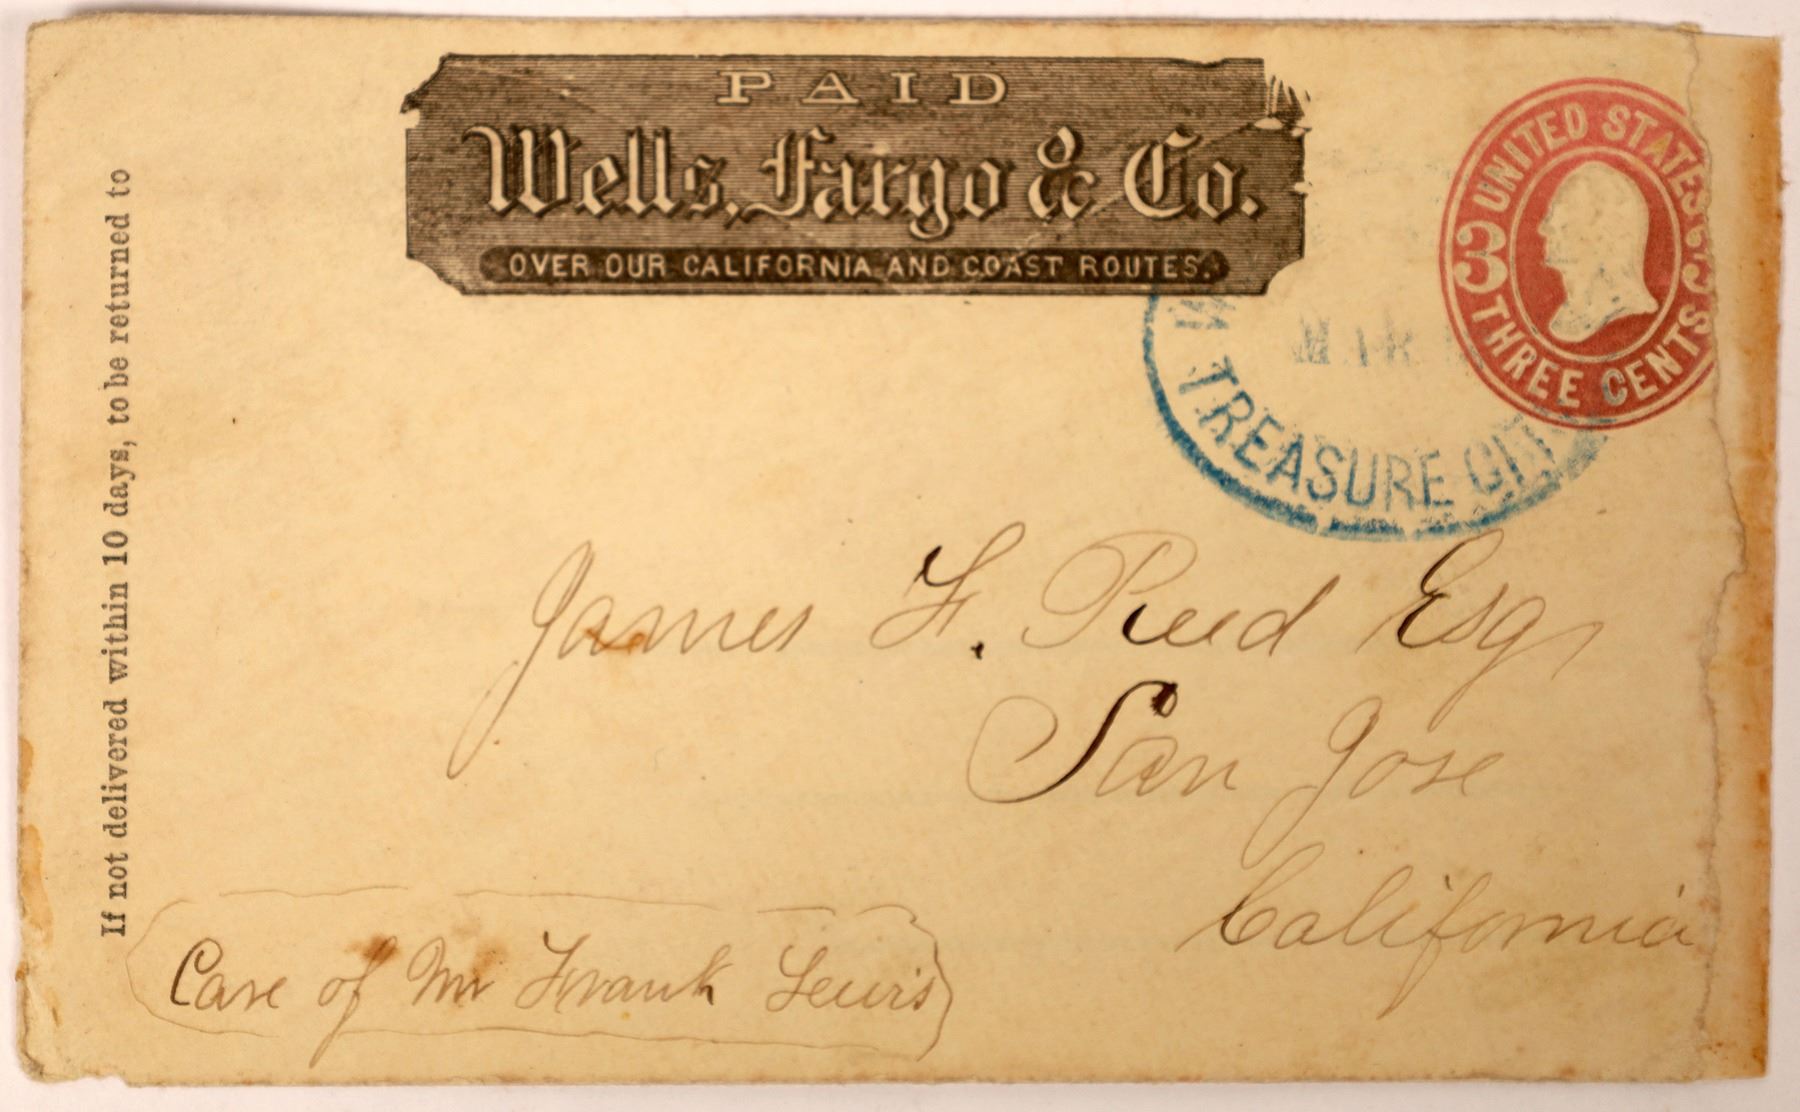 PAID
Wells, Fargo & Co.
OVER OUR CALIFORNIA AND COAST ROUTES.
UNITED STATES
3 3
THREE CENTS
W
MAR
TREASURE CITY
If not delivered within 10 days, to be returned to
James F. Reed Esq,
San Jose
California
Care of Mr Frank Lewis